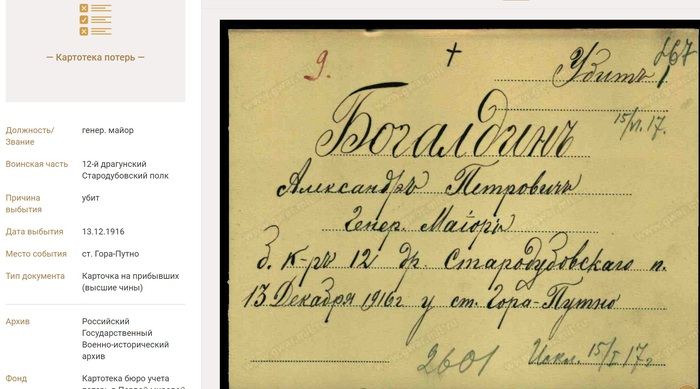 — Картотека потерь —
Должность/
Звание
генер. майор
Воинская часть
12-й драгунский
Стародубовский полк
Причина
выбытия
убит
Дата выбытия
13.12.1916
Место события
ст. Гора-Путно
Тип документа
Карточка на прибывших
(высшие чины)
Архив
Российский
Государственный
Военно-исторический
архив
Фонд
Картотека бюро учета
9.
Убитъ
15/VI.17.
Богалдинъ
Александръ Петровичъ
Генер. Маіоръ
б. К-ръ 12 др. Стародубовскаго п.
13 Декабря 1916г у ст. Гора-Путно
2601
15/I 17г